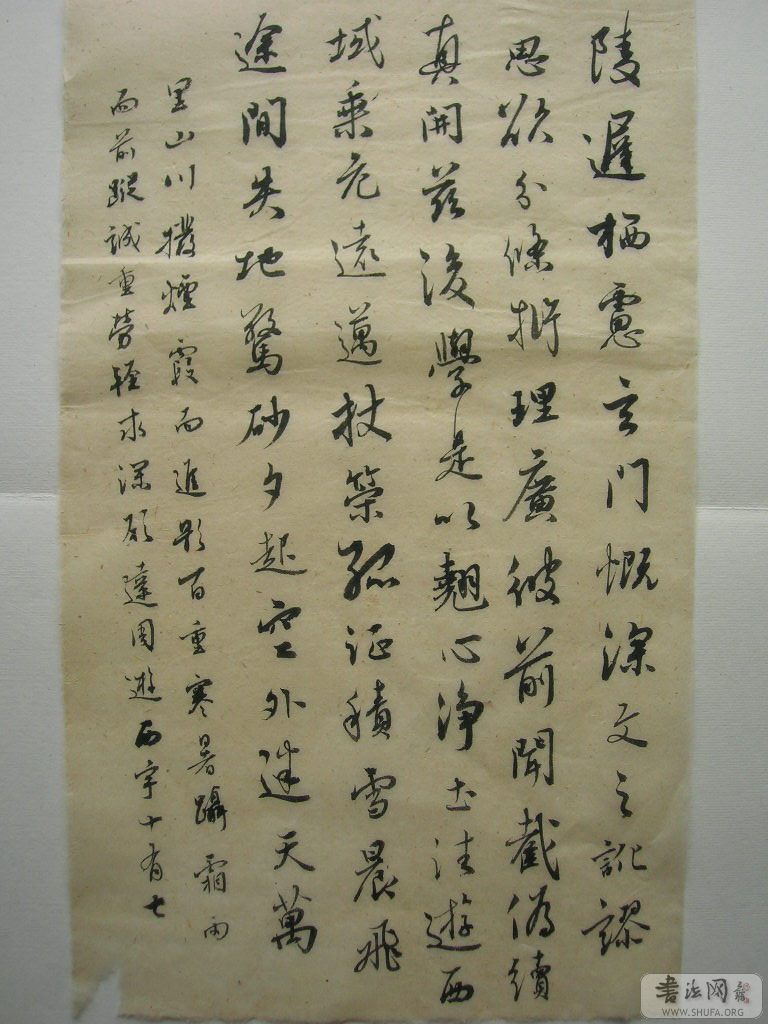 陵遲栖慮玄門慨深文之訛謬
思欲分條析理廣彼前聞截偽續
真開茲後學是以翹心淨土往遊西
域乘危遠邁杖策孤征積雪晨飛
途間失地驚砂夕起空外迷天萬
里山川撥煙霞而進影百重寒暑躡霜雨
而前蹤誠重勞輕求深願達周遊西宇十有七
書法网
WWW.SHUFA.ORG